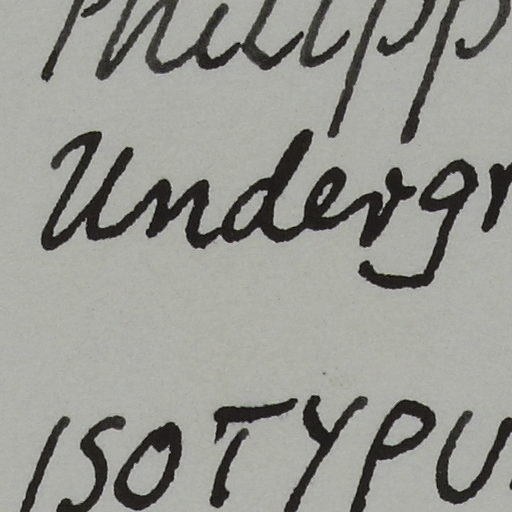 Philipp
Undergr
ISOTYPU